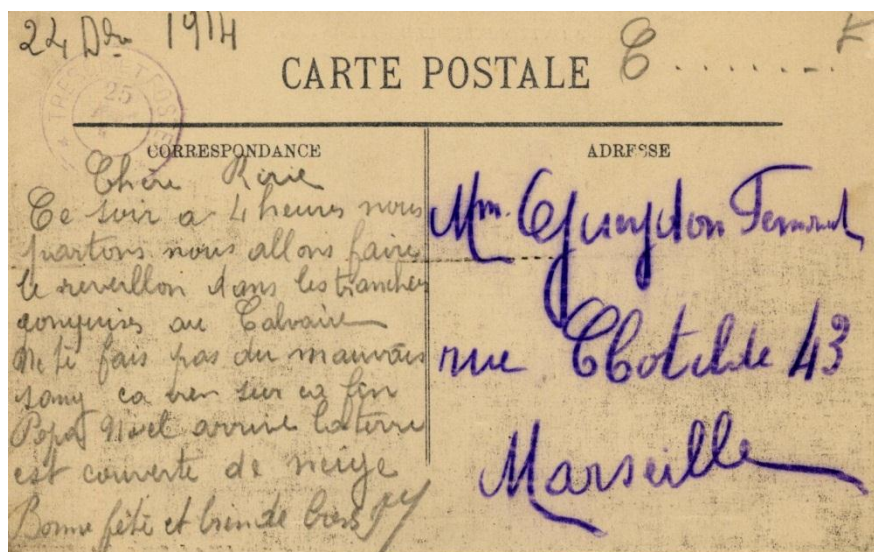 24 Dbr 1914
CARTE POSTALE
TRESOR ET POSTES
25
CORRESPONDANCE
Chère Rosie
Ce soir a 4 heures nous
partons nous allons faire
le reveillon dans les tranchées
conquises au Calvaire
Ne te fais pas du mauvais
sang ca
Papa Noel arrive la terre
est couverte de neige
Bonne fête et bien de
ADRESSE
Mm. Gueydon Fernand
rue Clotilde 43
Marseille